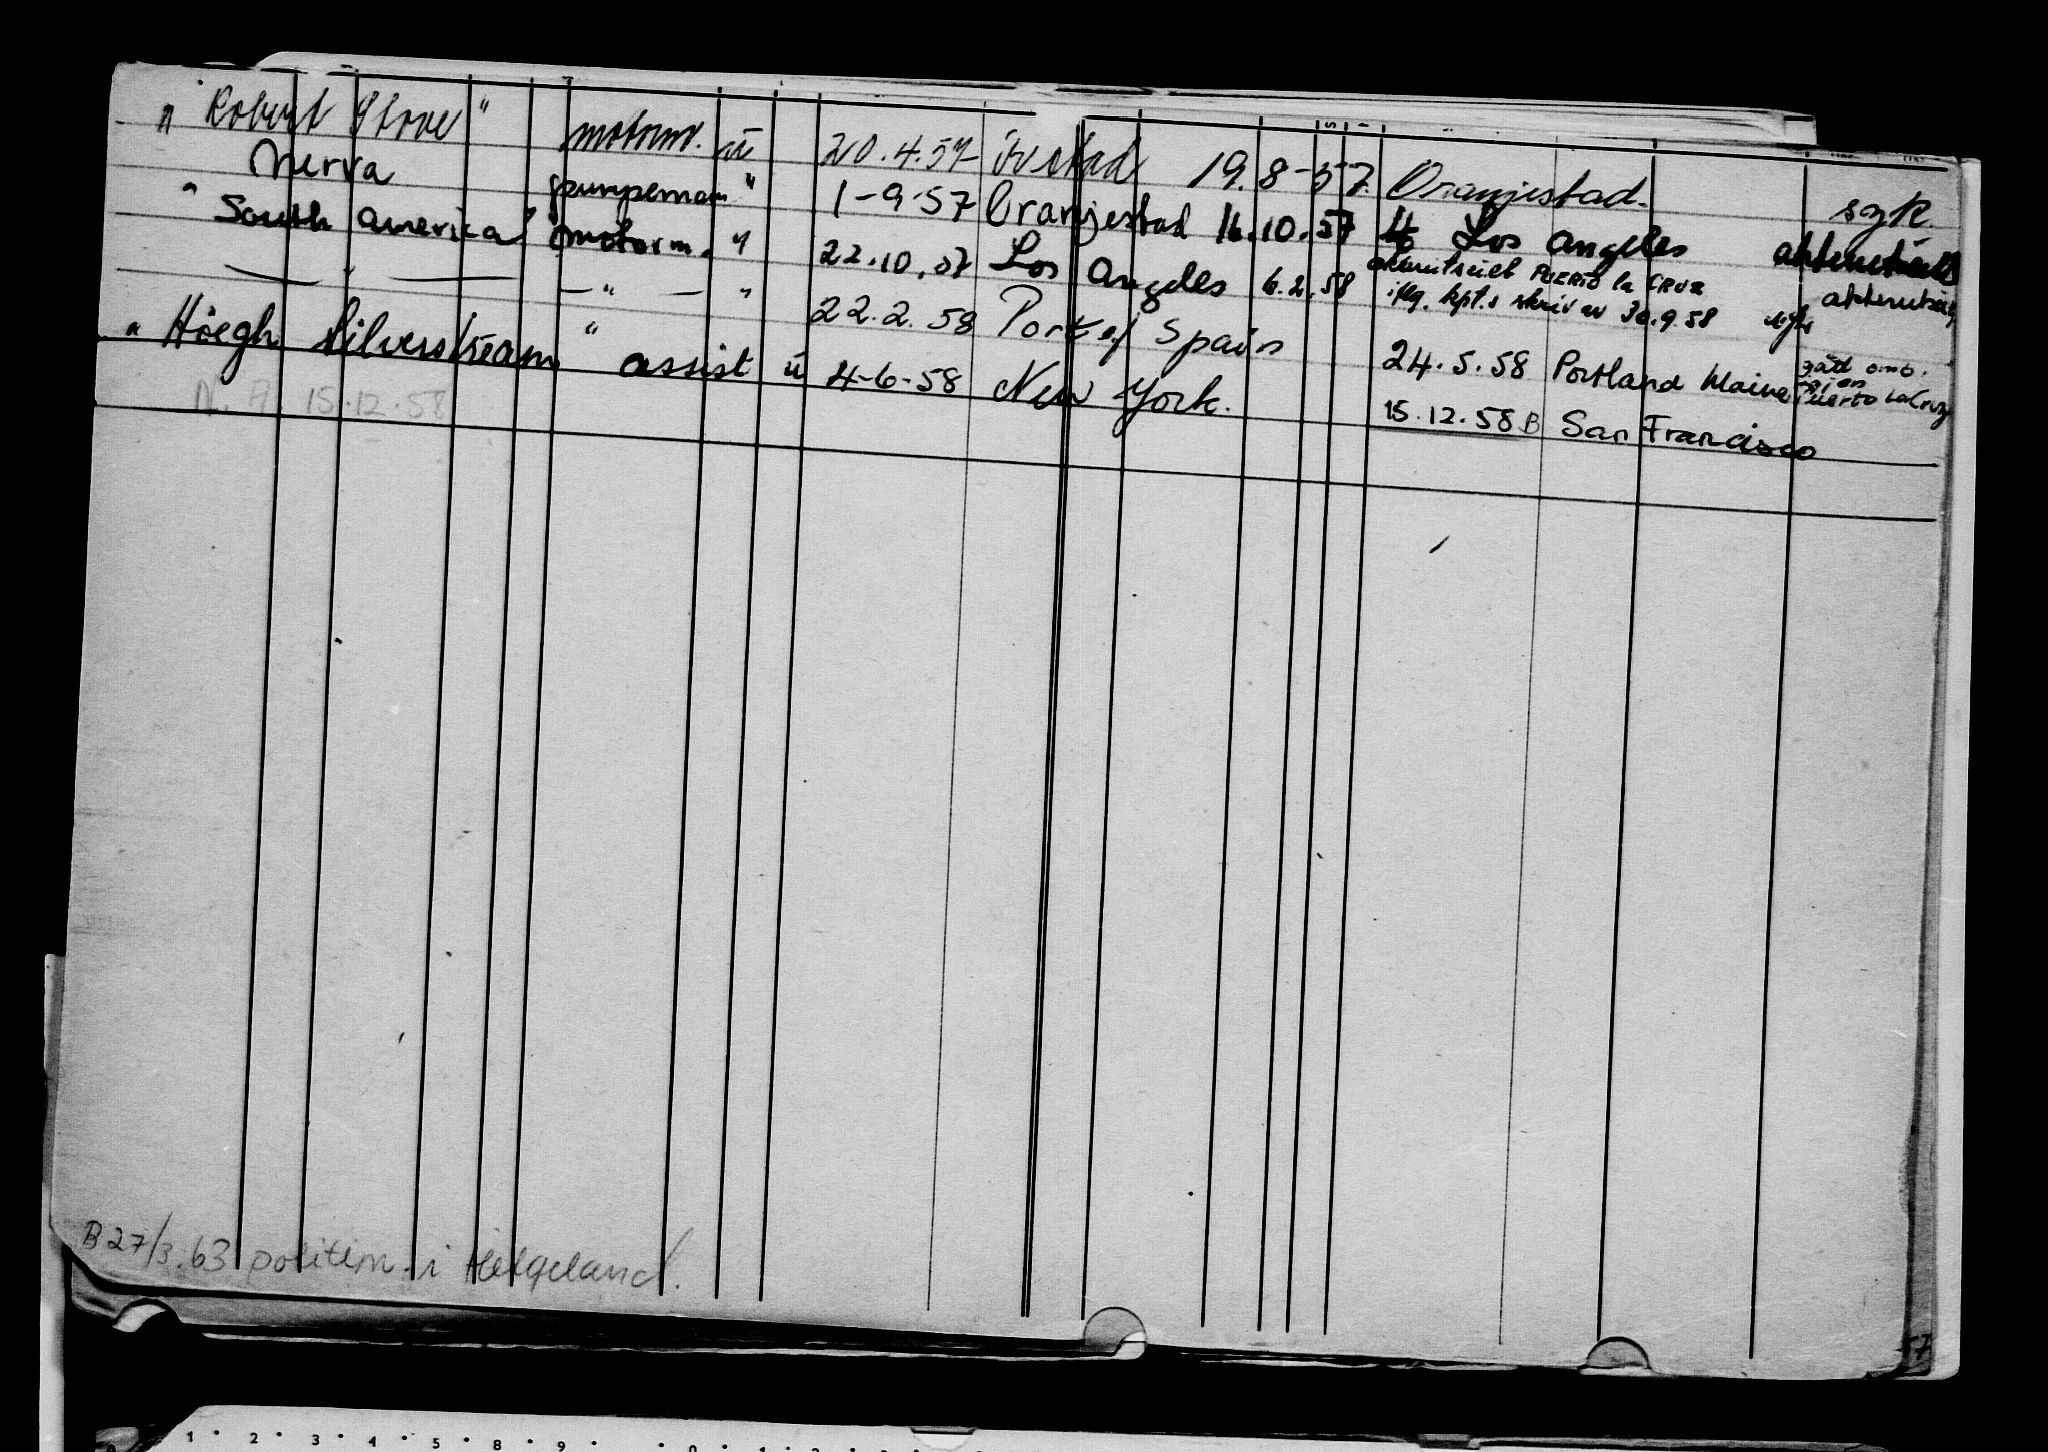 " Robert Stove " motorm. ü 20.4.57 Ivstad 19.8-57. Oranjestad. syk
Nerva pumpeman " 1-9-57 Oranjestad 16.10.57 Los Angeles
" South America " motorm. " 22.10.57 Los Angeles 6.2.58 Puerto la Cruz
iflg. kpt.s skriv av 30.9.58
— " — — " — " 22.2.58 Port of Spain 24.5.58 Portland Maine
Puerto La Cruz
" Höegh Silverstream " assist ü 4-6-58 New York. 15.12.58 B San Francisco
N. A 15.12.58
B 27/3.63 politim. i Helgeland.
57
1 2 3 4 5 8 9 0 1 2